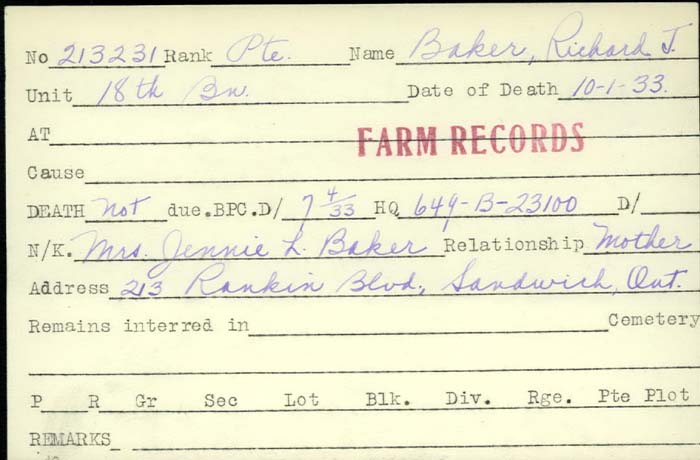 No 213231 Rank Pte. Name Baker, Richard J.
Unit 18th Bn. Date of Death 10-1-33.
AT FARM RECORDS
Cause
DEATH Not due.BPC.D/ 7 4/33 HQ 649-B-23100 D/
N/K. Mrs. Jennie L. Baker Relationship Mother
Address 213 Rankin Blvd., Sandwich, Ont.
Remains interred in Cemetery
P R Gr Sec Lot Blk. Div. Rge. Pte Plot
REMARKS